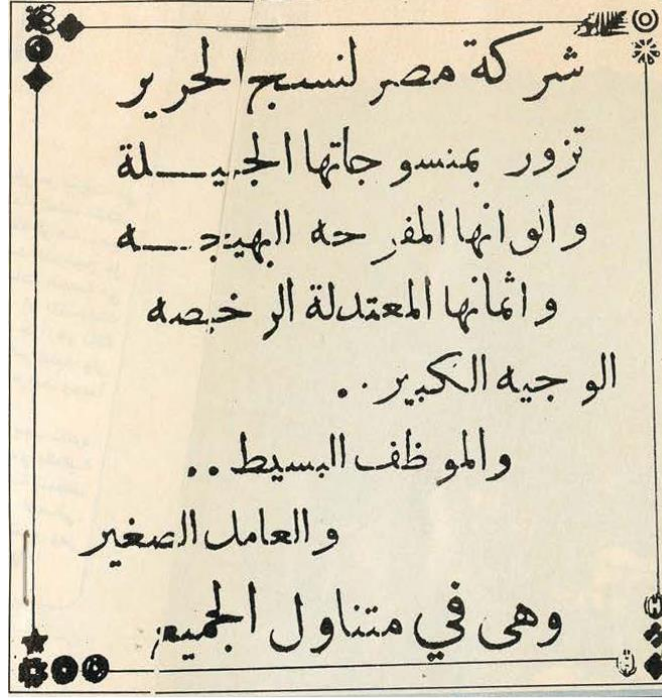 شركة مصر لنسيج الحرير
تزور بمنسوجاتها الجميلة
والوانها المفرحه البهيجه
واثمانها المعتدلة الرخيصه
الوجيه الكبير..
والموظف البسيط..
والعامل الصغير
وهى في متناول الجميع